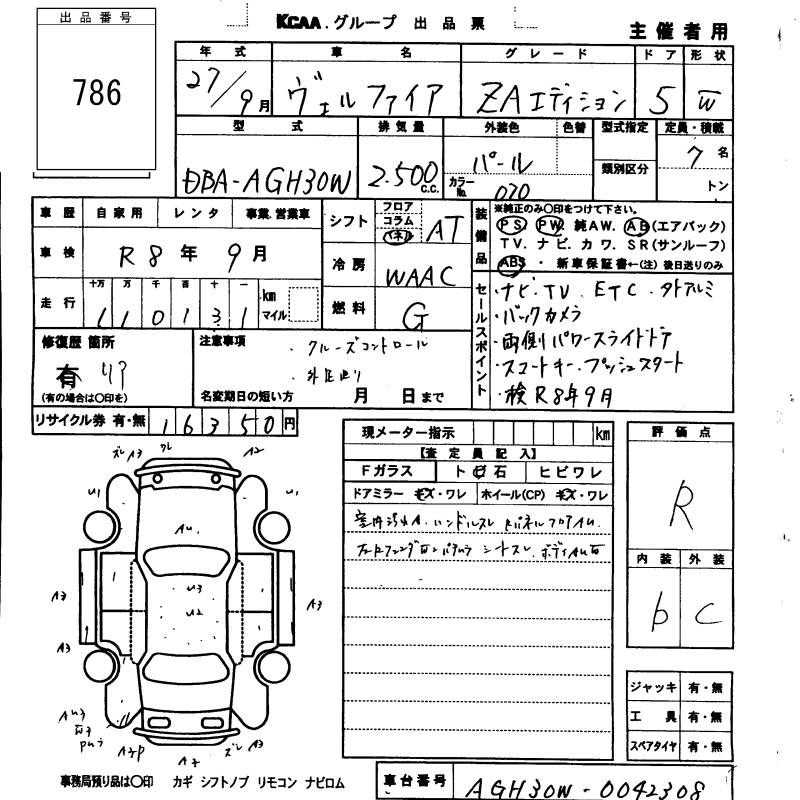 出品番号
786
KCAA.グループ 出品票
主催者用
年式 車名 グレード ドア 形状
27/9月 ヴェルファイア ZAエディション 5 W
型式 排気量 外装色 色替 型式指定 定員・積載
DBA-AGH30W 2.500 c.c. パール カラーNo. 070 類別区分 7名 トン
車歴 自家用 レンタ 事業.営業車
車検 R8年9月
走行 十万 万 千 百 十 一
110131 km マイル
シフト フロア コラム パネル AT
冷房 WAAC
燃料 G
装備品
※純正のみ〇印をつけて下さい。
PS PW 純AW. AB(エアバック)
TV. ナビ. カワ. SR(サンルーフ)
ABS ・ 新車保証書←(注)後日送りのみ
セールスポイント
・ナビ.TV. ETC. 外アルミ
・バックカメラ
・両側パワースライドドア
・スマートキー.プッシュスタート
・検R8年9月
修復歴 箇所
有 リア
(有の場合は〇印を)
注意事項
・クルーズコントロール
名変期日の短い方 月 日まで
リサイクル券 有・無 16350円
現メーター指示 km
【査定員記入】
Fガラス ト石 ヒビワレ
ドアミラー キズ・ワレ ホイール(CP) キズ・ワレ
室内汚れA. ハンドルスレ
シートスレ
評価点
R
内装 外装
b C
ズレ A3 ワレ A2
U1 U1
AU.
U3
U2
A3 A3
A3
AU3
W3
PU3
A3P A7 ズレ A3
ジャッキ 有・無
工具 有・無
スペアタイヤ 有・無
事務局預り品は〇印 カギ シフトノブ リモコン ナビロム
車台番号 AGH30W-0042308